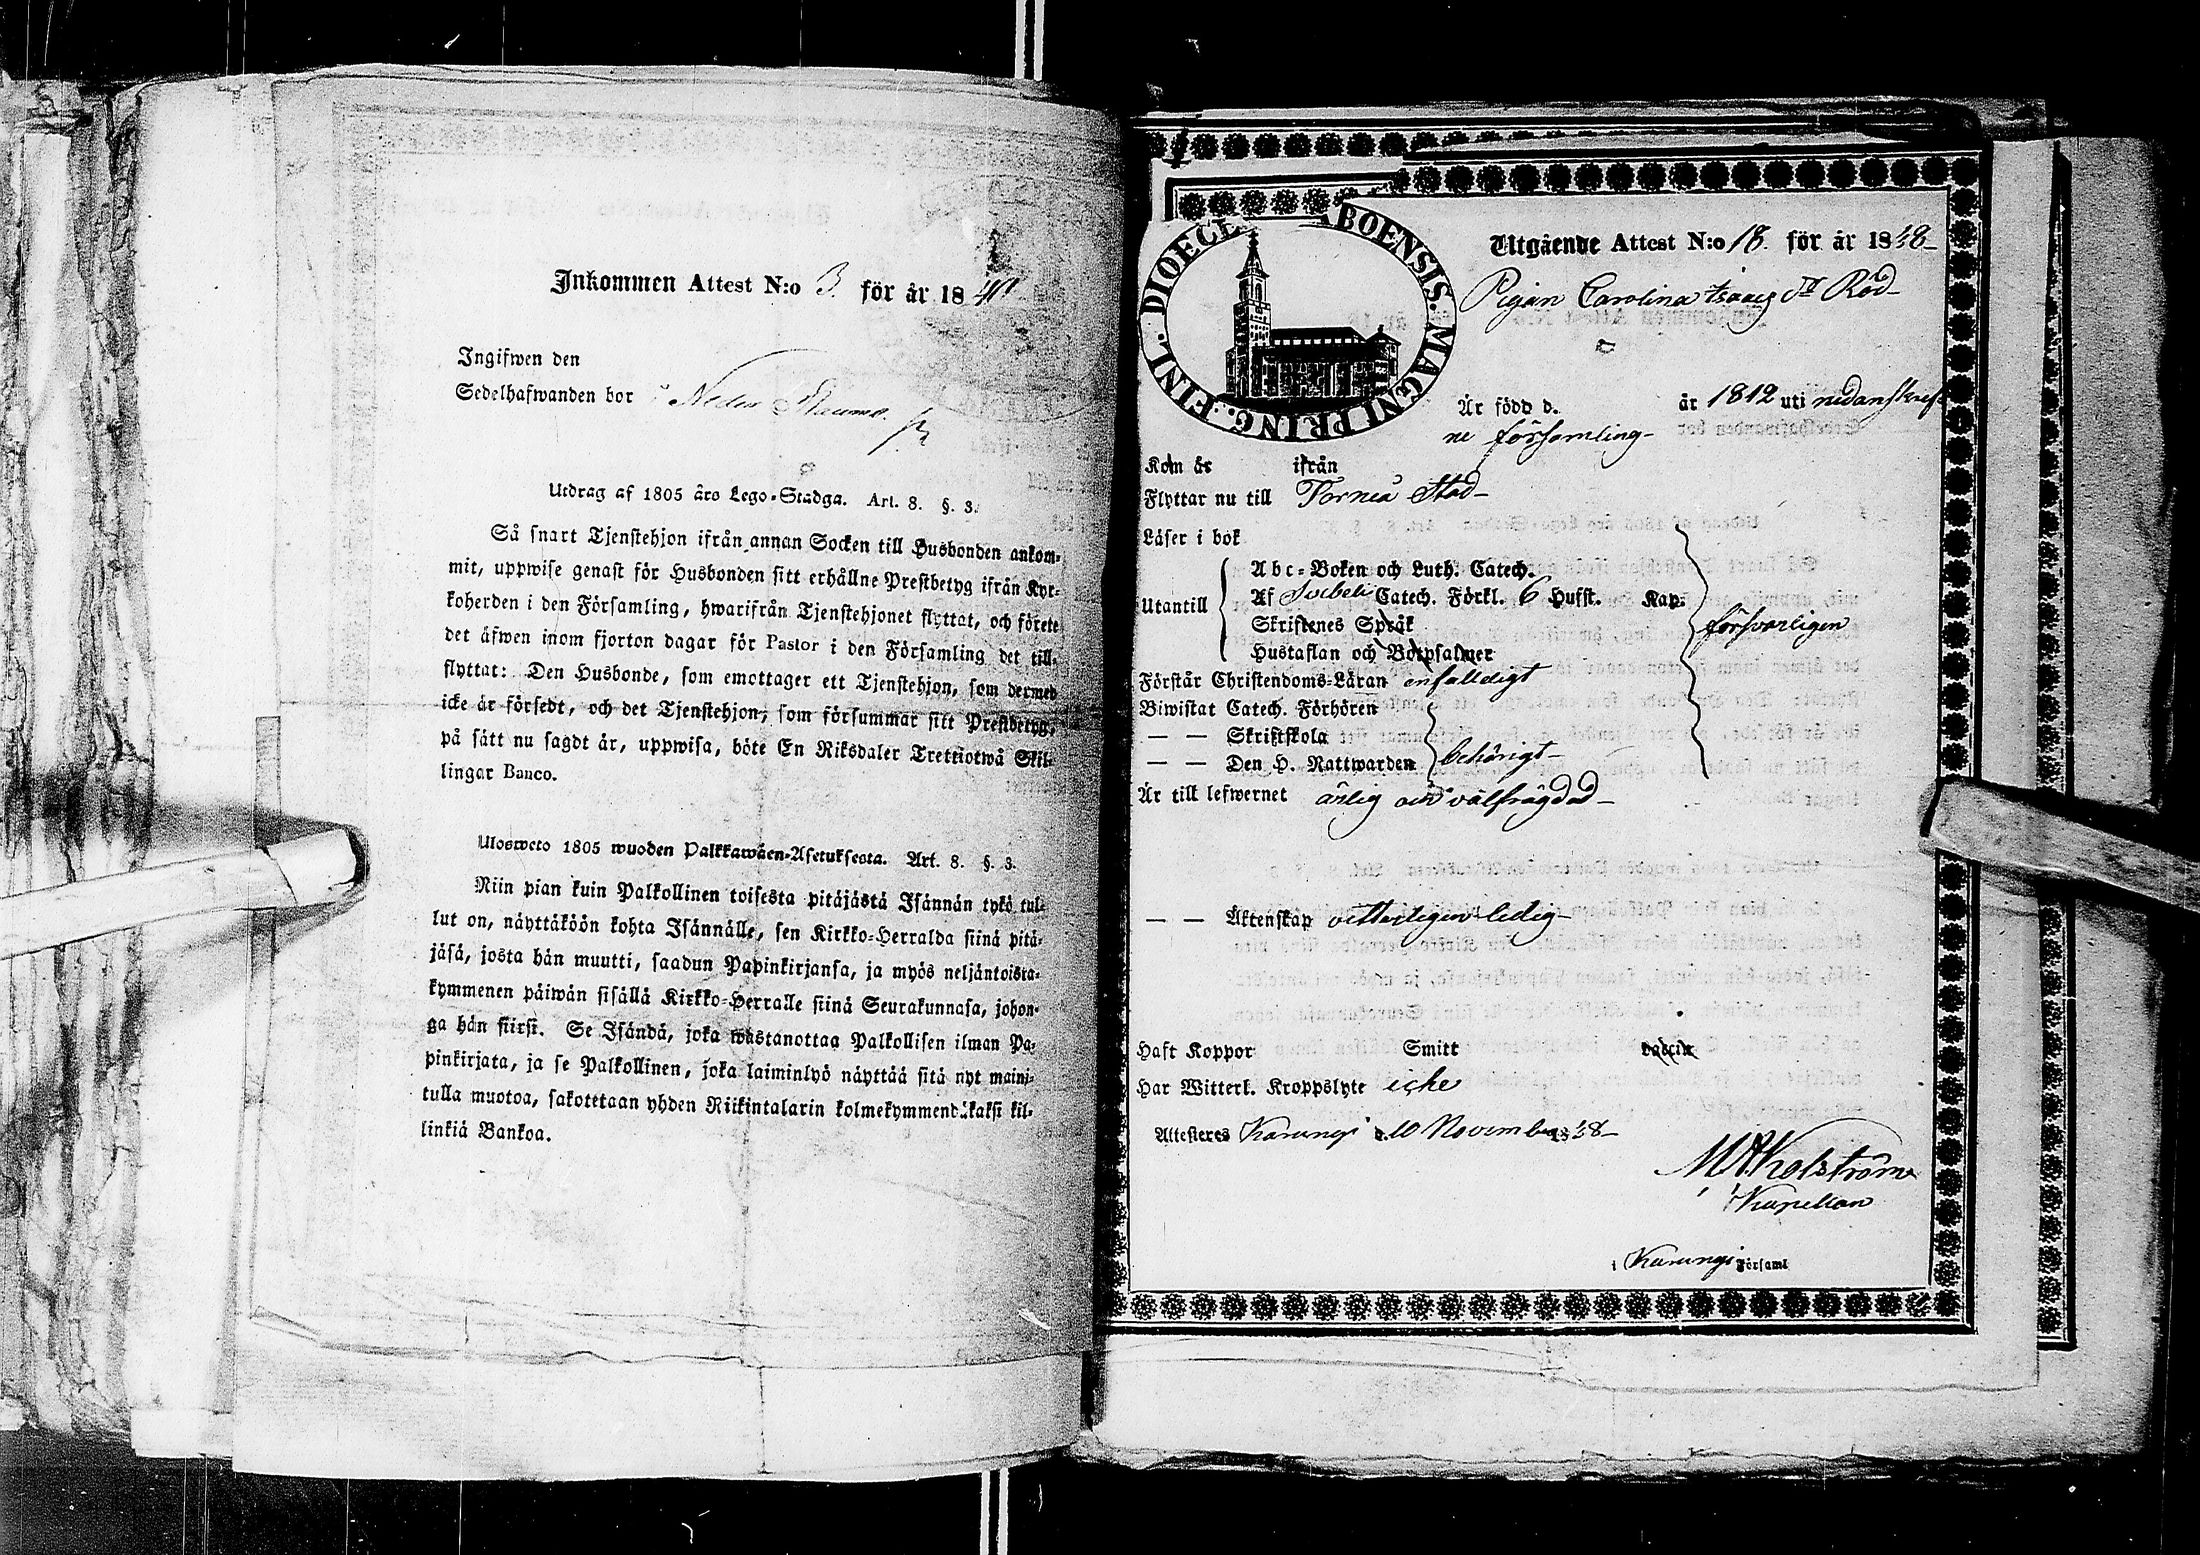 Inkommen Attest N:o 3. för år 18
Ingifwen den
Sedelhafwanden bor i Neder
Utdrag af 1805 års Lego-Stadga. Art. 8. §. 3.
Så snart Tjenstehjon ifrån annan Socken till Husbonden ankom-
mit, uppwise genast för Husbonden sitt erhållne Prestbetyg ifrån Kyr-
koherden i den Församling, hwarifrån Tjenstehjonet flyttat, och förete
det äfwen inom fjorton dagar för Pastor i den Församling det till-
flyttat: Den Husbonde, som emottager ett Tjenstehjon, som dermed
icke är försedt, och det Tjenstehjon, som försummar sitt Prestbetyg,
på sätt nu sagdt är, uppwisa, böte En Riksdaler Trettiotwå Skil-
lingar Banco.
Ulosweto 1805 wuoden Palkkawäen-Asetuksesta. Art. 8. §. 3.
Niin pian kuin Palkollinen toisesta pitäjästä Isännän tykö tul-
lut on, näyttäköön kohta Isännälle, sen Kirkko-Herralda siinä pitä-
jäsä, josta hän muutti, saadun Papinkirjansa, ja myös neljäntoista-
kymmenen päiwän sisällä Kirkko-Herralle siinä Seurakunnasa, johon-
ga hän siirsi. Se Isändä, joka wastanottaa Palkollisen ilman Pa-
pinkirjata, ja se Palkollinen, joka laiminlyö näyttää sitä nyt maini-
tulla muotoa, sakotetaan yhden Riikintalarin kolmekymmendäkaksi kil-
linkiä Bankoa.
FINL. DIOECE ABOENSIS. MAGNI PRING.
Utgående Attest N:o 18. för år 1848
Pigan Carolina Isaacs dr Röd
Är född d. år 1812 uti nedanskref-
ne församling
Kom år ifrån
Flyttar nu till Torneå Stad
Läser i bok
Abc-Boken och Luth. Catech.
Utantill Af Svebeli Catech. Förkl. 6 Hufst. Kap.
Skriftenes Språk försvarligen
Hustaflan och Botpsalmer
Förstår Christendoms-Läran enfaldigt
Biwistat Catech. Förhören
— — Skriftskola
— — Den H. Nattwarden behörigt
Är till lefwernet ärlig och välfrägdad
— — Äktenskap vetterligen ledig
Haft Koppor Smitt vaccin
Har Witterl. Kroppslyte icke
Attesteres Karungi d. 10 November 1848
Kapellan
i Karungi Församl